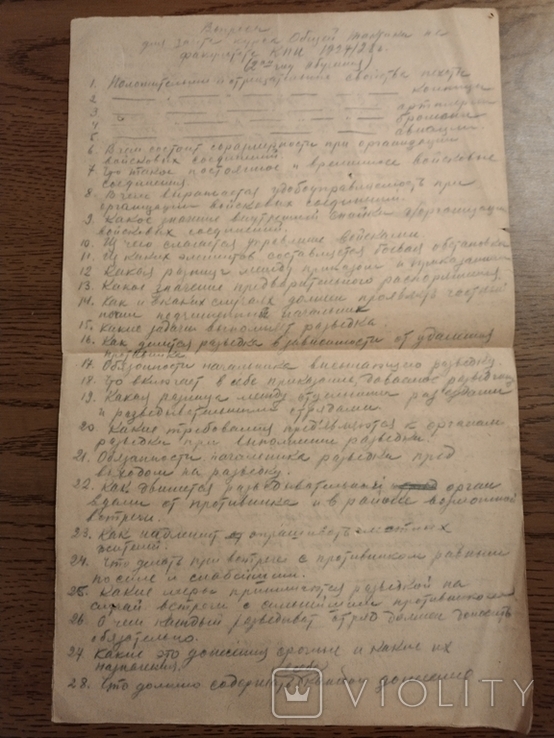 Вопросы
для зачета курса Общей тактики на
факультете КПИ 1927/28 г.
(2ой год обучения)
1. Положительные и отрицательные свойства пехоты
2 — — — конницы
3 — " — — — артиллерии
4 — " — — — броневых
5 — — — авиации.
6. В чем состоит соразмерность при организации
войсковых соединений.
7. Что такое постоянное и временное войсковые
соединения.
8. В чем выражается удобоуправляемость при
организации войсковых соединений.
9. Какое значение внутренней спайки в организации
войсковых соединений.
10. Из чего слагается управление войсками.
11. Из каких элементов составляется боевая обстановка
12. Какая разница между приказом и приказанием
13. Какое значение предварительного распоряжения.
14. Как и в каких случаях должен проявлять частный
почин подчиненный начальник
15. Какие задачи выполняет разведка
16. Как делится разведка в зависимости от удаления
противника
17. Обязанности начальника высылающего разведку.
18. Что включает в себе приказание, даваемое разведчику
19. Какая разница между отдельными разъездами
и разведывательными отрядами.
20. Какие требования предъявляются к органам
разведки при выполнении разведки.
21. Обязанности начальника разведки пред
выходом на разведку.
22. Как движется разведывательный орган
вдали от противника и в районе возможной
встречи.
23. Как надлежит опрашивать местных
жителей.
24. Что делать при встрече с противником равным
по силе и слабейшим.
25. Какие меры принимаются разведкой на
случай встречи с сильнейшим противником
26. О чем каждый разведыват отряд должен доносить
обязательно.
27 Какие это донесения срочные и какие их
названия.
28. Что должно содержать каждое донесение
VIOLITY